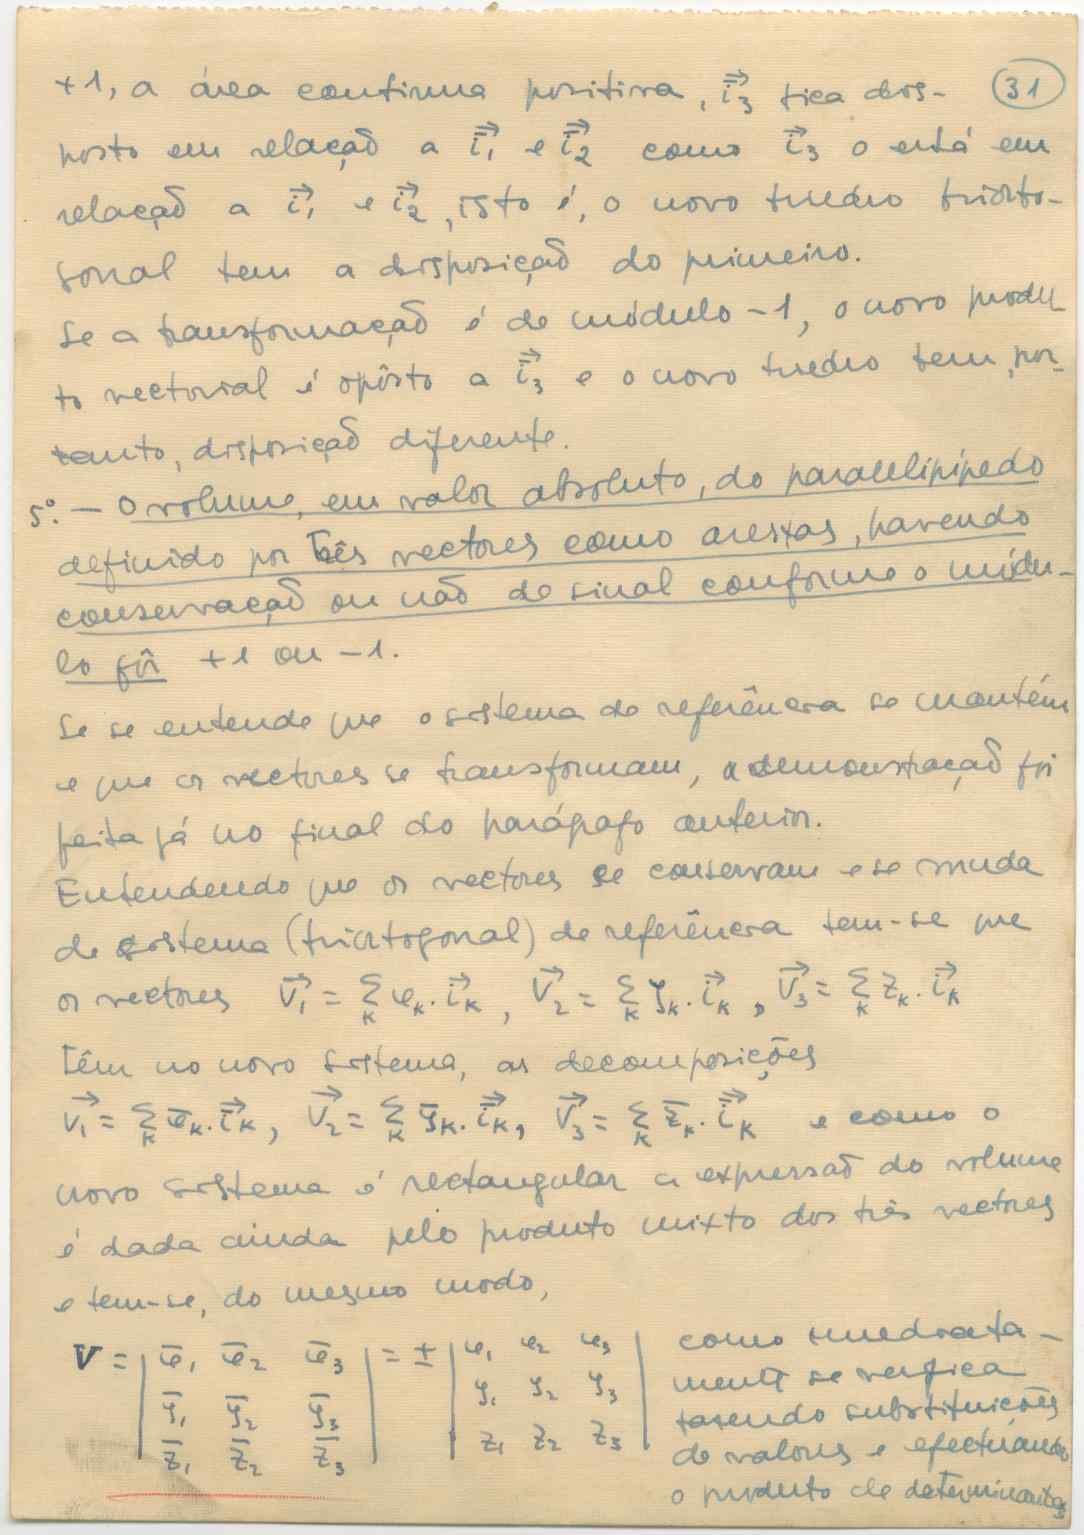 +1, a área continua positiva, i⃗̄₃ fica dis- (31)
posto em relação a i⃗̄₁ e i⃗̄₂ como i⃗₃ o está em
relação a i⃗₁ e i⃗₂, isto é, o novo triedro triorto-
gonal tem a disposição do primeiro.
Se a transformação é de módulo -1, o novo produ-
to vectorial é opôsto a i⃗̄₃ e o novo triedro tem, por-
tanto, disposição diferente.
5º. — O volume, em valor absoluto, do paralelipípedo
definido por três vectores como arestas, havendo
conservação ou não de sinal conforme o módu-
lo fôr +1 ou -1.
Se se entende que o sistema de referência se mantém
e que os vectores se transformam, a demonstração foi
feita já no final do parágrafo anterior.
Entendendo que os vectores se conservam e se muda
de sistema (triortogonal) de referência tem-se que
os vectores V⃗₁ = Σₖ xₖ. i⃗ₖ, V⃗₂ = Σₖ yₖ. i⃗ₖ, V⃗₃ = Σₖ zₖ. i⃗ₖ
têm no novo sistema, as decomposições
V⃗₁ = Σₖ x̄ₖ. i⃗̄ₖ, V⃗₂ = Σₖ ȳₖ. i⃗̄ₖ, V⃗₃ = Σₖ z̄ₖ. i⃗̄ₖ e como o
novo sistema é rectangular a expressão do volume
é dada ainda pelo produto mixto dos três vectores
e tem-se, do mesmo modo,
V = | x̄₁ x̄₂ x̄₃ | = ± | x₁ x₂ x₃ | como imediata-
| ȳ₁ ȳ₂ ȳ₃ | | y₁ y₂ y₃ | mente se verifica
| z̄₁ z̄₂ z̄₃ | | z₁ z₂ z₃ | fazendo substituições
de valores e efectuando
o produto de determinantes